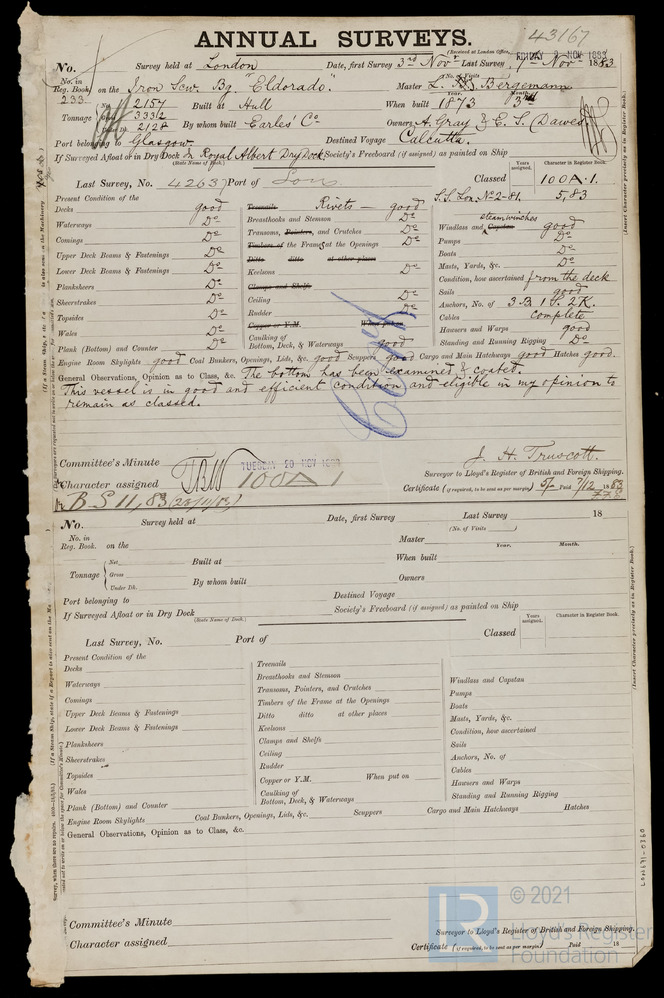 43167
ANNUAL SURVEYS.
(Received at London Office, FRIDAY 9 NOV 1883
No. Survey held at London Date, first Survey 3rd Novr Last Survey 7th Novr 1883
(No. of Visits)
No. in Reg. Book. 233 on the Iron Scw. Bq. "Eldorado." Master L. Bergemann
Year. Month.
Tonnage Net 2157 Built at Hull When built 1873 3
Gross 3332 By whom built Earles' Co. Owners A. Gray & E. S. (Dawes)
Under Dk. 2128
Port belonging to Glasgow Destined Voyage Calcutta.
If Surveyed Afloat or in Dry Dock In Royal Albert Dry Dock Society's Freeboard (if assigned) as painted on Ship
(State Name of Dock.)
Last Survey, No. 42637 Port of Lon Classed
Years assigned. Character in Register Book.
100A.1.
S.S. Lon. No 2-81. 5,83
Present Condition of the
Decks good
Waterways Do
Comings Do
Upper Deck Beams & Fastenings Do
Lower Deck Beams & Fastenings Do
Planksheers Do
Sheerstrakes Do
Topsides Do
Wales Do
Plank (Bottom) and Counter Do
Treenails Rivets good
Breasthooks and Stemson Do
Transoms, Pointers, and Crutches Do
Timbers of the Frames at the Openings Do
Ditto ditto at other places
Keelsons Do
Clamps and Shelfs
Ceiling Do
Rudder Do
Copper or Y.M. When put on
Caulking of Bottom, Deck, & Waterways good
Windlass and steam winches Capstan good
Pumps Do
Boats Do
Masts, Yards, &c. Do
Condition, how ascertained from the deck
Sails good
Anchors, No. of 3 B 1 S. 2 K.
Cables complete
Hawsers and Warps good
Standing and Running Rigging Do
Engine Room Skylights good Coal Bunkers, Openings, Lids, &c. good Scuppers good Cargo and Main Hatchways good Hatches good.
General Observations, Opinion as to Class, &c. The bottom has been examined & coated.
This vessel is in good and efficient condition and eligible in my opinion to
remain as classed.
Copy
J. H. Truscott.
Committee's Minute TUESDAY 20 NOV 1883
Surveyor to Lloyd's Register of British and Foreign Shipping.
Character assigned 100A1
Certificate (if required, to be sent as per margin) 5/- Paid 7/12 1883
B S 11,83 (20/11/83)
No. Survey held at Date, first Survey Last Survey 18
(No. of Visits)
No. in Reg. Book. on the Master
Year. Month.
Tonnage Net Built at When built
Gross By whom built Owners
Under Dk.
Port belonging to Destined Voyage
If Surveyed Afloat or in Dry Dock Society's Freeboard (if assigned) as painted on Ship
(State Name of Dock.)
Last Survey, No. Port of Classed
Years assigned. Character in Register Book.
Present Condition of the
Decks
Waterways
Comings
Upper Deck Beams & Fastenings
Lower Deck Beams & Fastenings
Planksheers
Sheerstrakes
Topsides
Wales
Plank (Bottom) and Counter
Treenails
Breasthooks and Stemson
Transoms, Pointers, and Crutches
Timbers of the Frame at the Openings
Ditto ditto at other places
Keelsons
Clamps and Shelfs
Ceiling
Rudder
Copper or Y.M. When put on
Caulking of Bottom, Deck, & Waterways
Windlass and Capstan
Pumps
Boats
Masts, Yards, &c.
Condition, how ascertained
Sails
Anchors, No. of
Cables
Hawsers and Warps
Standing and Running Rigging
Engine Room Skylights Coal Bunkers, Openings, Lids, &c. Scuppers Cargo and Main Hatchways Hatches
General Observations, Opinion as to Class, &c.
Committee's Minute
Surveyor to Lloyd's Register of British and Foreign Shipping.
Character assigned
Certificate (if required, to be sent as per margin) Paid 18
(Insert Character precisely as in Register Book.)
(Insert Character precisely as in Register Book.)
© 2021
Lloyd's Register
Foundation